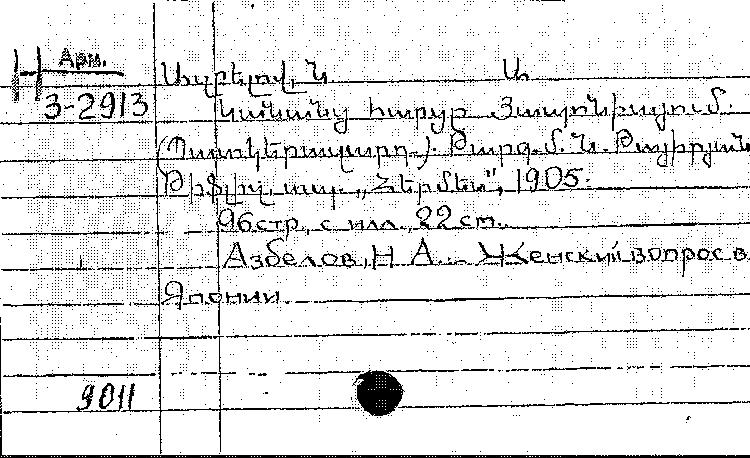 Н Арм.
3-2913
Ազբելով, Ն. Ա.
Կանանց հարցը Յապոնիայում.
(Պատկերազարդ). Թարգմ. Ն. Թայիրյան
Թիֆլիզ, տպ. „Հերմես", 1905.
96 стр., с илл., 22 см.
Азбелов, Н. А. Женский вопрос в
Японии.
9011